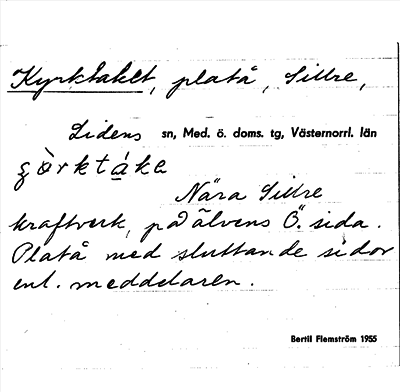 Kyrktaket, platå, Sillre,
Lidens sn, Med. ö. doms. tg, Västernorrl. län
çòrktáke
Nära Sillre
kraftverk, på älvens Ö. sida.
Platå med sluttande sidor
enl. meddelaren.
Bertil Flemström 1955